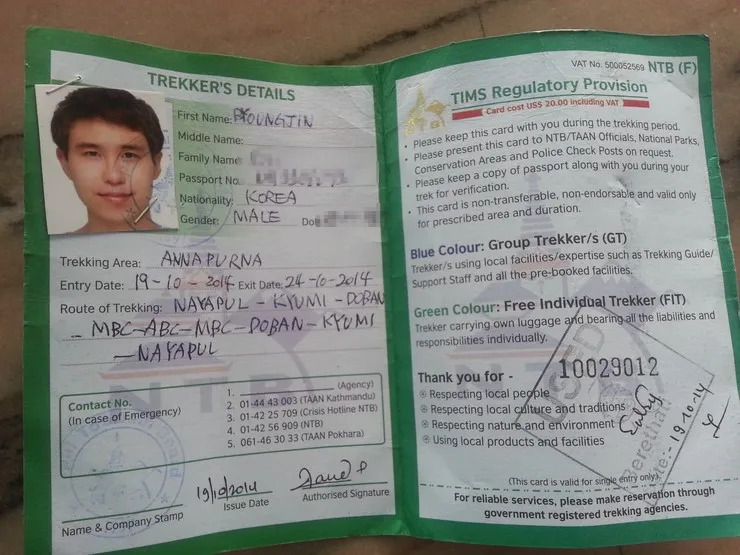 TREKKER'S DETAILS
First Name: PYOUNGJIN
Middle Name:
Family Name
Passport No.
Nationality: KOREA
Gender: MALE
Trekking Area: ANNAPURNA
Entry Date: 19-10-2014 Exit Date: 24-10-2014
Route of Trekking: NAYAPUL - KYUMI - DOBAN
- MBC-ABC-MBC-DOBAN-KYUMI
- NAYAPUL
Contact No.
(In case of Emergency)
1. (Agency)
2. 01-44 43 003 (TAAN Kathmandu)
3. 01-42 25 709 (Crisis Hotline NTB)
4. 01-42 56 909 (NTB)
5. 061-46 30 33 (TAAN Pokhara)
19/10/2014
Name & Company Stamp
Issue Date
Authorised Signature
VAT No. 500052569 NTB (F)
TIMS Regulatory Provision
Card cost US$ 20.00 including VAT
• Please keep this card with you during the trekking period.
• Please present this card to NTB/TAAN Officials, National Parks,
Conservation Areas and Police Check Posts on request.
• Please keep a copy of passport along with you during your
trek for verification.
• This card is non-transferable, non-endorsable and valid only
for prescribed area and duration.
Blue Colour: Group Trekker/s (GT)
Trekker/s using local facilities/expertise such as Trekking Guide/
Support Staff and all the pre-booked facilities.
Green Colour: Free Individual Trekker (FIT)
Trekker carrying own luggage and bearing all the liabilities and
responsibilities individually.
10029012
Thank you for -
Respecting local people
Respecting local culture and traditions
Respecting nature and environment
Using local products and facilities
Entry
19-10-14
(This card is valid for single entry only)
For reliable services, please make reservation through
government registered trekking agencies.